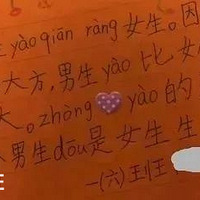 yào qiān ràng女生。因
大方,男生yào比女
大。zhòng yào的
男生dōu是女生生
一(六)王